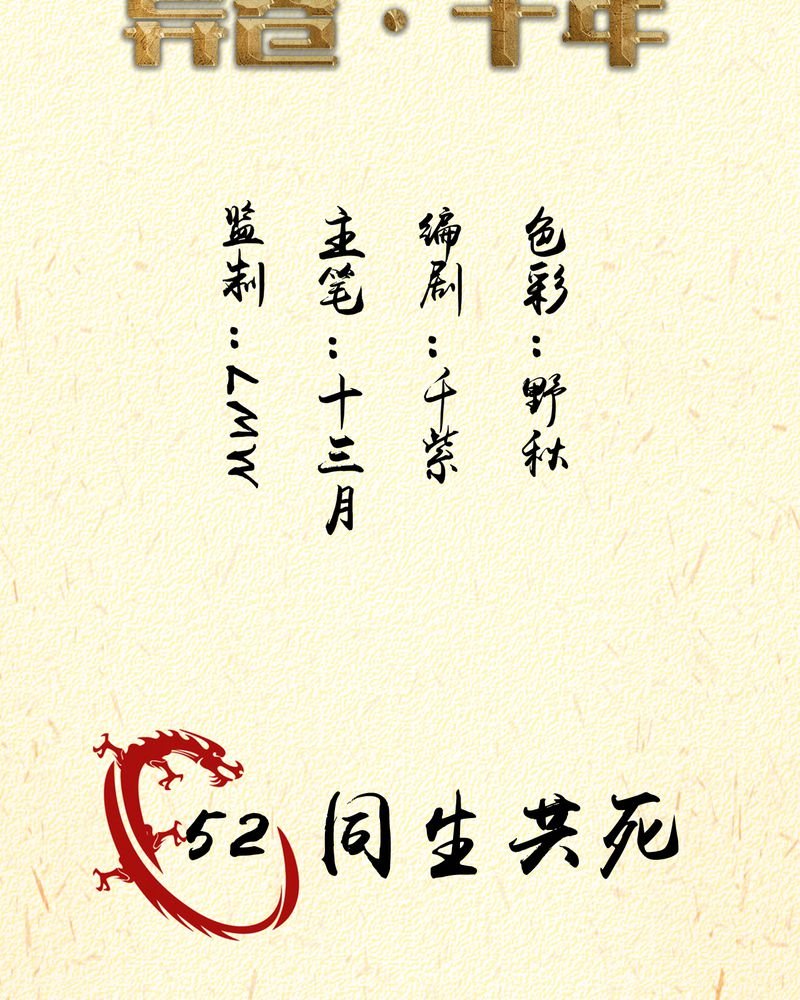 监制：MW7
主笔：十三月
编剧：千紫
色彩：野秋
52 同生共死